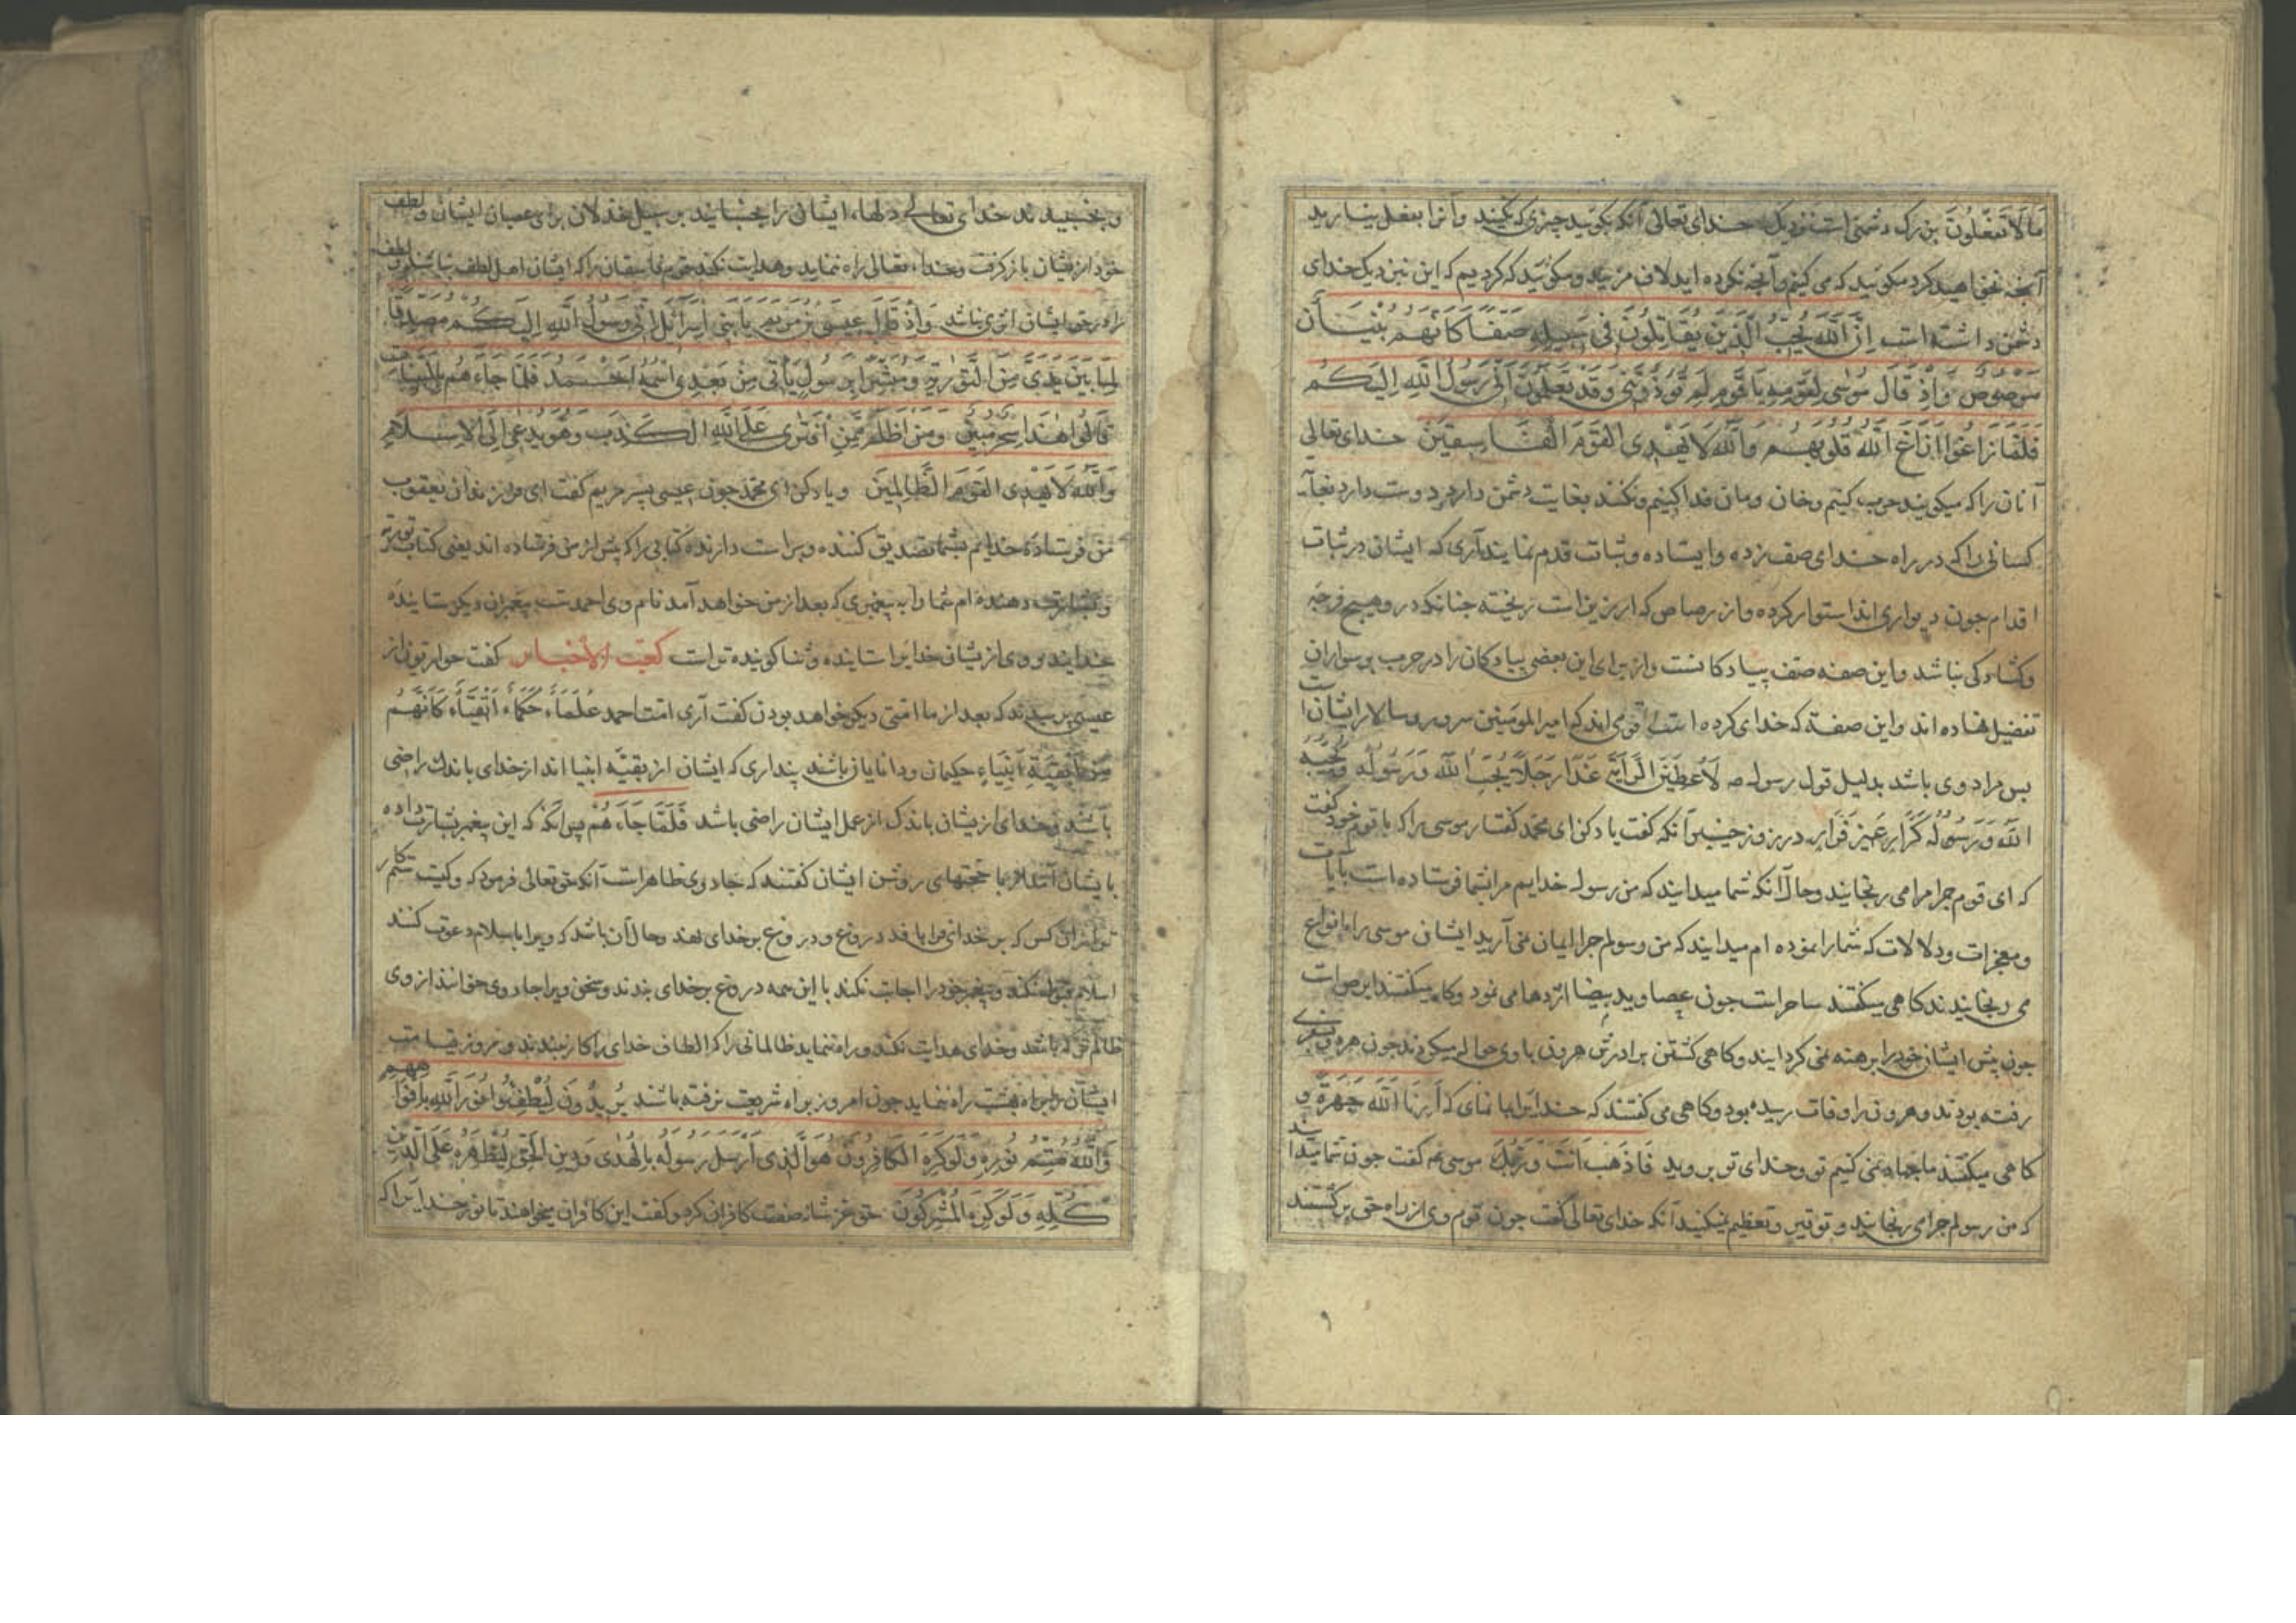 مَا لَا تَفْعَلُونَ بزرک دشمنی است نزدیک خدای تعالی آنکه بکوئید چیزی که نکنید وآنرا بفعل نیارید
آنچه نخواهید کرد مکوئید که می کنیم وآنچه نکرده اید لاف مزنید ومکوئید که کردیم که این نزدیک خدای
دشمن داشته است اِنَّ اللّٰهَ یُحِبُّ الَّذِینَ یُقَاتِلُونَ فِی سَبِیلِهِ صَفًّا کَاَنَّهُمْ بُنْیَانٌ
مَرْصُوصٌ وَاِذْ قَالَ مُوسٰی لِقَوْمِهِ یَا قَوْمِ لِمَ تُؤْذُونَنِی وَقَدْ تَعْلَمُونَ اَنِّی رَسُولُ اللّٰهِ اِلَیْکُمْ
فَلَمَّا زَاغُوا اَزَاغَ اللّٰهُ قُلُوبَهُمْ وَاللّٰهُ لَا یَهْدِی الْقَوْمَ الْفَاسِقِینَ خدای تعالی
آنان را که میکویند حرب کنیم وخان ومان فدا کنیم ونکنند بغایت دشمن دارد ودوست دارد
کسانی را که در راه خدای صف زده وایستاده وثبات قدم نمایند آری که ایشان در ثبات
اقدام جون دیواری اند استوار کرده واز رصاص که ارزیز است ریخته جنانکه درو هیچ فرجه
وکشادکی نباشد واین صفه صف پیادکانست واز برای این بعضی پیادکان را در حرب بر سواران
تفضیل نهاده اند واین صفت که خدای کرده است قومی اند که امیر المومنین سرور وسالار ایشان است
بس مراد وی باشد بدلیل قول رسول ص لَاُعْطِیَنَّ الرَّایَةَ غَدًا رَجُلًا یُحِبُّ اللّٰهَ وَرَسُولَهُ وَیُحِبُّهُ
اللّٰهُ وَرَسُولُهُ کَرَّارٌ غَیْرُ فَرَّارٍ در روز خیبر آنکه کفت یاد کن ای محمد کفتار موسی را که با قوم خود کفت
که ای قوم جرا مرا می رنجانید وحال آنکه شما میدانید که من رسول خدایم مرا بشما فرستاده است بآیات
ومعجزات ودلالات که شما را نموده ام میدانید که من رسولم جرا ایمان نمی آرید ایشان موسی را بانواع
می رنجانیدند کاهی میکفتند ساحراست جون عصا وید بیضا اژدها می نمود وکاه میکفتند ابرص است
جون پیش ایشان خود را برهنه نمی کردایند وکاهی کشتن برادرش هرون باوی حواله میکردند جون هر دو بری
رفته بودند وهرون را وفات رسیده بود وکاهی می کفتند که خدایرا بما نمای که اَرِنَا اللّٰهَ جَهْرَةً و
کاهی میکفتند ما جهاد نمی کنیم تو وخدای تو بروید فَاذْهَبْ اَنْتَ وَرَبُّکَ موسی ع کفت جون شما میدانید
که من رسولم جرا می رنجانید وتوقیر وتعظیم نمیکنید آنکه خدای تعالی کفت جون قوم وی از راه حق برکشتند
وبخسبیدند خدای تعالی دلهاء ایشان را بخسبانید بر سبیل خذلان برای عصیان ایشان ولطف
خود ازیشان بازکرفت وخداء تعالی راه ننماید وهدایت نکند قوم فاسقان را که ایشان اهل لطف نباشند ولطف
را در حق ایشان اثری نباشد وَاِذْ قَالَ عِیسَی بْنُ مَرْیَمَ یَا بَنِی اِسْرَآئِلَ اِنِّی رَسُولُ اللّٰهِ اِلَیْکُمْ مُصَدِّقًا
لِمَا بَیْنَ یَدَیَّ مِنَ التَّوْرٰیةِ وَمُبَشِّرًا بِرَسُولٍ یَأْتِی مِنْ بَعْدِی اسْمُهُ اَحْمَدُ فَلَمَّا جَاءَهُمْ بِالْبَیِّنَاتِ
قَالُوا هٰذَا سِحْرٌ مُبِینٌ وَمَنْ اَظْلَمُ مِمَّنِ افْتَرٰی عَلَی اللّٰهِ الْکَذِبَ وَهُوَ یُدْعٰی اِلَی الْاِسْلَامِ
وَاللّٰهُ لَا یَهْدِی الْقَوْمَ الظَّالِمِینَ ویاد کن ای محمد جون عیسی پسر مریم کفت ای فرزندان یعقوب
من فرستاده خدایم بشما تصدیق کننده وراست دارنده کتابی را که پیش از من فرستاده اند یعنی کتاب توریة
وبشارت دهنده ام شما را به پیغمبری که بعد از من خواهد آمد نام وی احمدست پیغمبران دیکر ستاینده
خدایند ووی ازیشان خدایرا ستاینده وثنا کوینده تراست کعب الاحبار کفت حواریون از
عیسی پرسیدند که بعد از ما امتی دیکر خواهد بودن کفت آری امت احمد عُلَمَاءُ حُکَمَاءُ اَتْقِیَاءُ کَاَنَّهُمْ
مِنْ بَقِیَّةِ اَنْبِیَاءِ حکیمان ودانایان باشند پنداری که ایشان از بقیّه انبیا اند از خدای باندک راضی
باشند وخدای ازیشان باندک از عمل ایشان راضی باشد فَلَمَّا جَاءَهُمْ پس آنکه که این پیغمبر بشارت داده
بایشان آمد با حجتهای روشن ایشان کفتند که جادوی ظاهراست آنکه حق تعالی فرمود که وکیست ستمکار
تر از آن کس که بر خدای فرا بافد دروغ ودروغ بر خدای نهد وحال آن باشد که ویرا باسلام دعوت کنند
اسلام قبول نکند وپیغمبر خود را اجابت نکند با این همه دروغ بر خدای بندند وسخن ویرا جادوی خوانند از وی
ظالم تر که باشد وخدای هدایت نکند وراه ننماید ظالمانی را که الطاف خدای را کار نبندند ودر روز قیامت
ایشان را براه بهشت راه ننماید جون امروز براه شریعت نرفته باشند یُرِیدُونَ لِیُطْفِئُوا نُورَ اللّٰهِ بِاَفْوَاهِهِمْ
وَاللّٰهُ مُتِمُّ نُورِهِ وَلَوْ کَرِهَ الْکَافِرُونَ هُوَ الَّذِی اَرْسَلَ رَسُولَهُ بِالْهُدٰی وَدِینِ الْحَقِّ لِیُظْهِرَهُ عَلَی الدِّینِ
کُلِّهِ وَلَوْ کَرِهَ الْمُشْرِکُونَ حق عز شانه صفت کافران کرد وکفت این کافران میخواهند تا نور خدایرا که